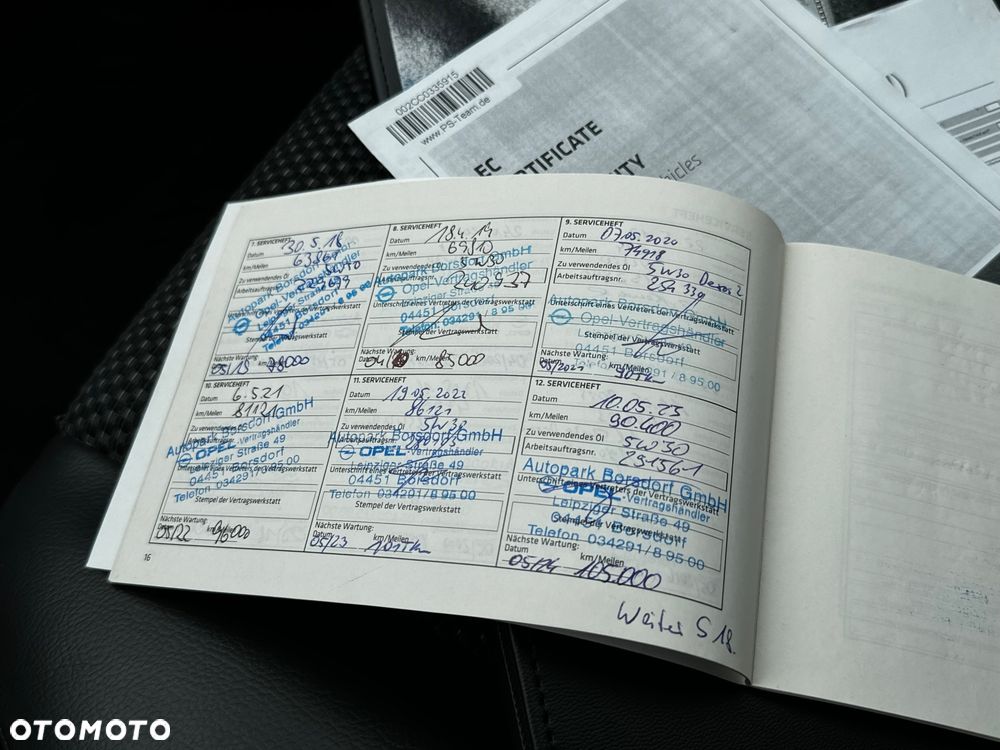 002CC0335915
www.PS-Team.de
EC
CERTIFICATE
7. SERVICEHEFT
Datum 30.5.18
km/Meilen
Zu verwendendes Öl
Arbeitsauftragsnr.
Autopark Borsdorf GmbH
Opel-Vertragshändler
04451 Borsdorf
Nächste Wartung:
05/19 78000
8. SERVICEHEFT
Datum 18.4.19
km/Meilen 69810
Zu verwendendes Öl 5W30
Arbeitsauftragsnr.
Autopark Borsdorf GmbH
Opel-Vertragshändler
Leipziger Straße 49
Unterschrift eines Vertreters der Vertragswerkstatt
04451 Borsdorf
Telefon 034291/8 95 00
Stempel der Vertragswerkstatt
Nächste Wartung:
km/Meilen 85000
9. SERVICEHEFT
Datum 07.05.2020
km/Meilen 74918
Zu verwendendes Öl 5W30 Dexos 2
Arbeitsauftragsnr.
Autopark Borsdorf GmbH
Unterschrift eines Vertreters der Vertragswerkstatt
Opel-Vertragshändler
Stempel der Vertragswerkstatt
04451 Borsdorf
Telefon 034291/8 95 00
Nächste Wartung:
Datum km/Meilen
05/2021 90Tkm
10. SERVICEHEFT
Datum 6.5.21
km/Meilen 81121
Zu verwendendes Öl
Arbeitsauftragsnr.
Autopark Borsdorf GmbH
OPEL-Vertragshändler
Leipziger Straße 49
Unterschrift eines Vertreters der Vertragswerkstatt
04451 Borsdorf
Telefon 034291/8 95 00
Stempel der Vertragswerkstatt
Nächste Wartung:
05/22 96000
11. SERVICEHEFT
Datum 19.05.2022
km/Meilen 86121
Zu verwendendes Öl 5W30
Arbeitsauftragsnr.
Autopark Borsdorf GmbH
OPEL-Vertragshändler
Leipziger Straße 49
Unterschrift eines Vertreters der Vertragswerkstatt
04451 Borsdorf
Telefon 034291/8 95 00
Stempel der Vertragswerkstatt
Nächste Wartung:
Datum km/Meilen
05/23 101Tkm
12. SERVICEHEFT
Datum 10.05.23
km/Meilen 90.400
Zu verwendendes Öl 5W30
Arbeitsauftragsnr. 291561
Autopark Borsdorf GmbH
Unterschrift eines Vertreters der Vertragswerkstatt
OPEL-Vertragshändler
Leipziger Straße 49
Stempel der Vertragswerkstatt
04451 Borsdorf
Telefon 034291/8 95 00
Nächste Wartung:
Datum km/Meilen
05/24 105.000
16
Weiter S 18.
OTOMOTO